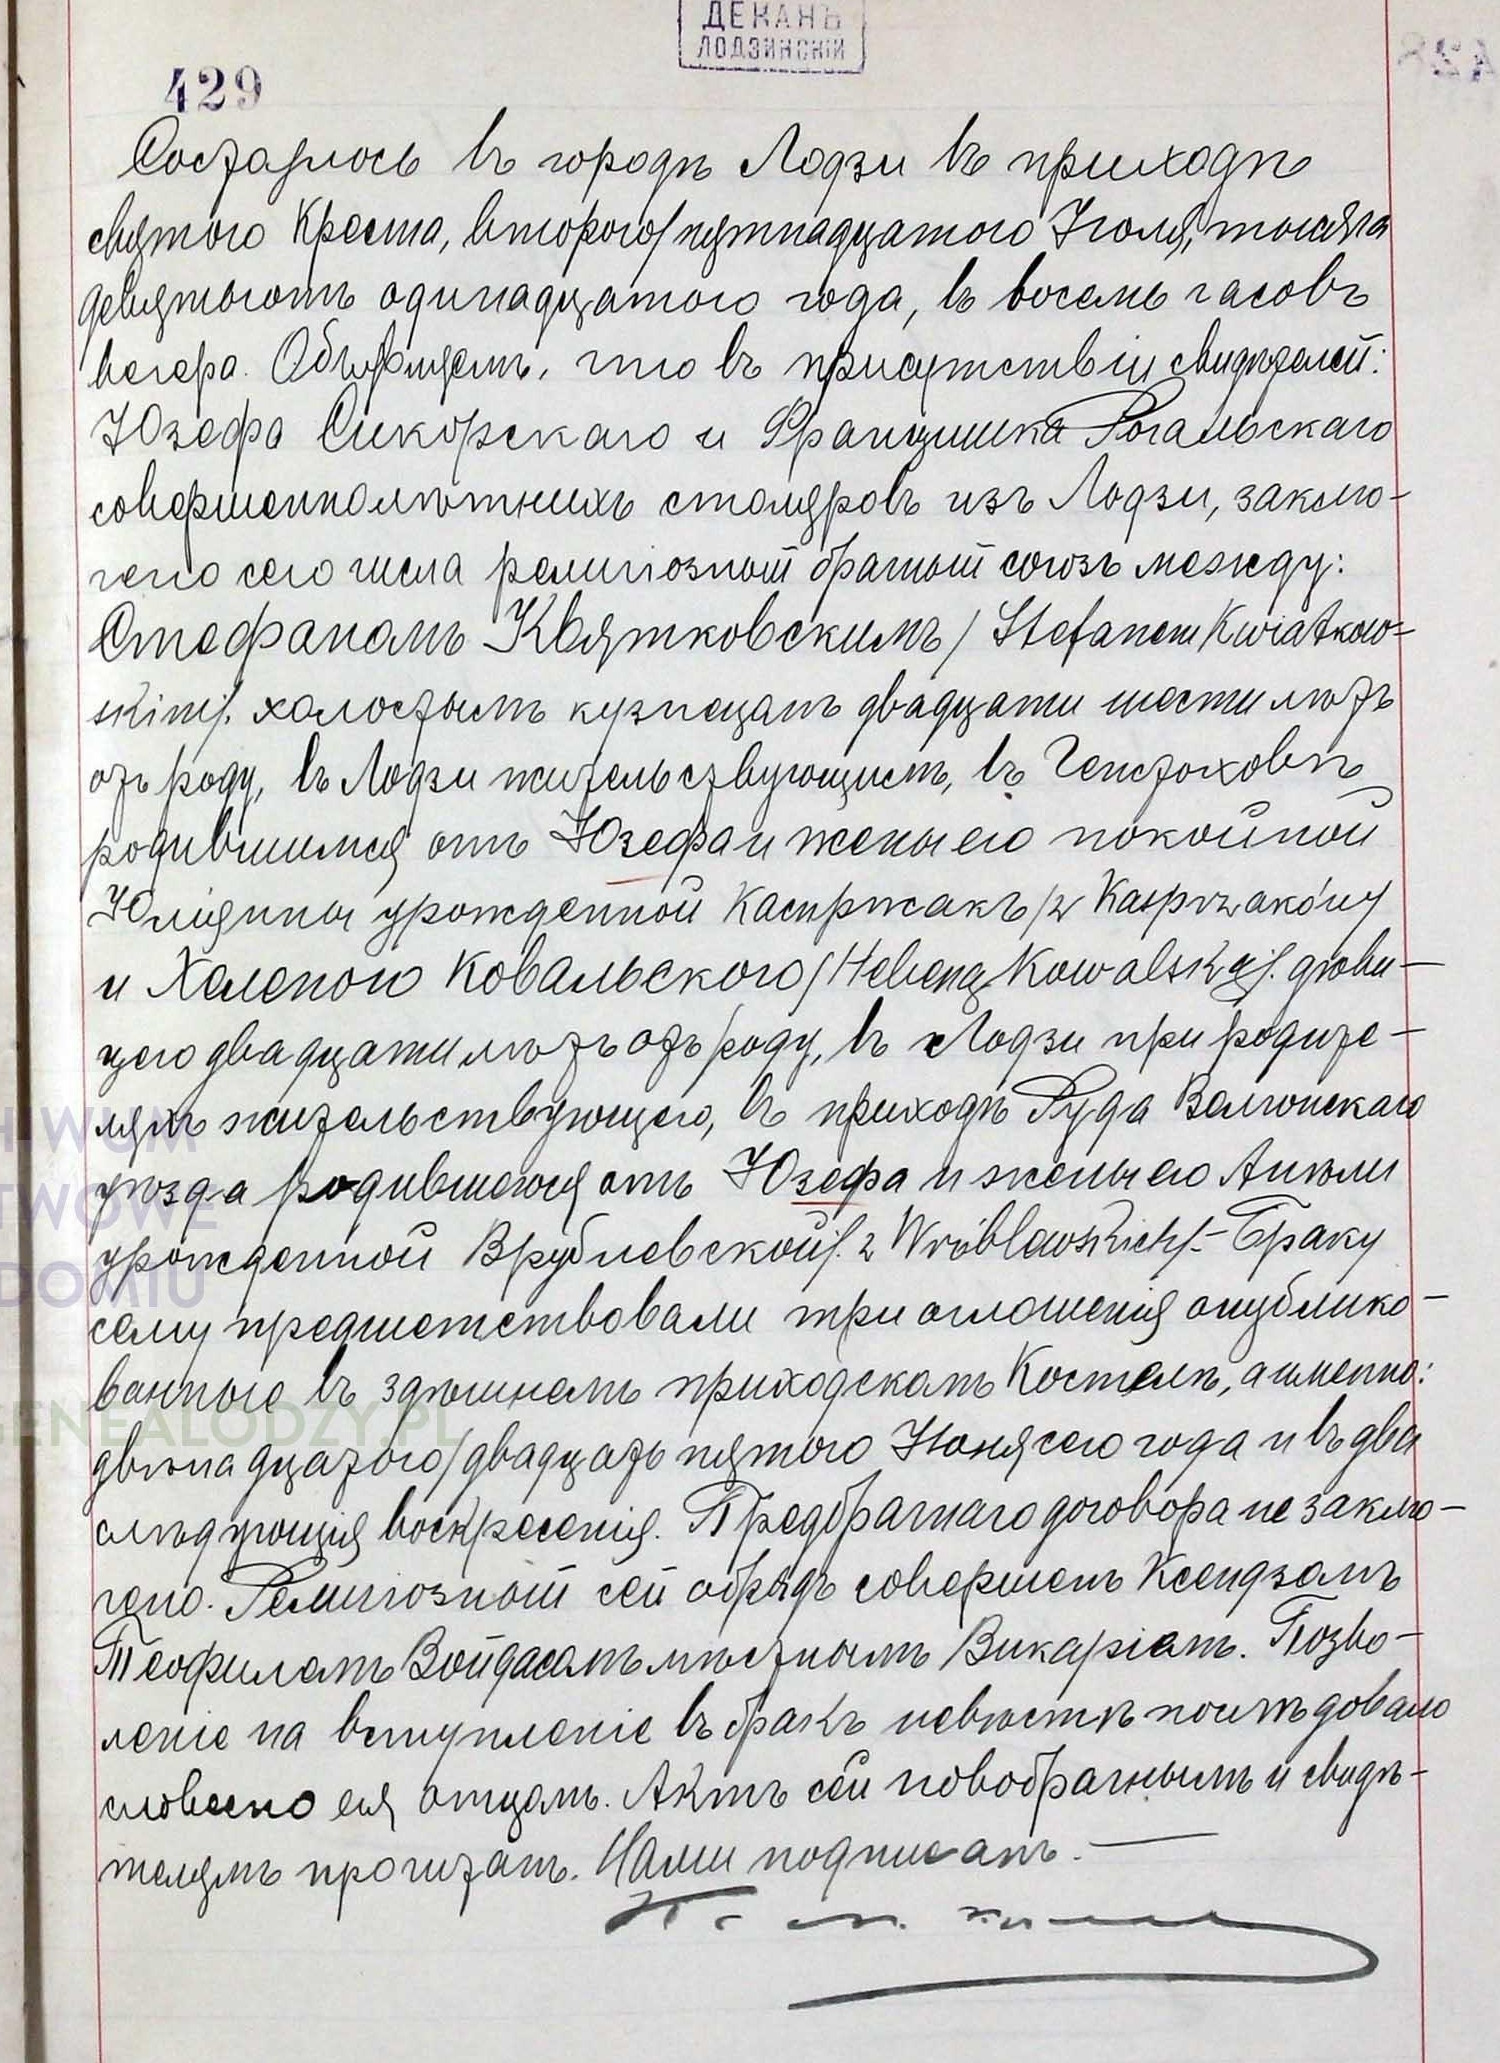 ДЕКАНЪ
ЛОДЗИНСКІЙ
429
Состоялось въ городѣ Лодзи въ приходѣ
святого Креста, второго/пятнадцатого Іюля, тысяча
девятьсотъ одинадцатого года, въ восемь часовъ
вечера. Объявляемъ, что въ присутствіи свидѣтелей:
Юзефа Сикорскаго и Францишка Рогальскаго
совершеннолѣтнихъ столяровъ изъ Лодзи, заклю-
чено сего числа религіозный брачный союзъ между:
Стефаномъ Квятковскимъ /Stefanem Kwiatkow-
skim/. холостымъ кузнецомъ двадцати шести лѣтъ
отъ роду, въ Лодзи жительствующимъ, въ Ченстоховѣ
родившимся отъ Юзефа и жены его покойной
Юліянны урожденной Каспржакъ /z Kasprzaków/
и Хеленою Ковальскою /Heleną Kowalską/. дѣви-
цею двадцати лѣтъ отъ роду, въ Лодзи при родите-
ляхъ жительствующею, въ приходѣ Руда Велюнскаго
уѣзда родившеюся отъ Юзефа и жены его Анѣли
урожденной Врублевской /. z Wróblewskich/.- Браку
сему предшествовали три оглошенія опублико-
ванные въ здѣшнемъ приходскомъ Костелѣ, а именно:
двѣнадцатого/двадцать пятого Іюня сего года и въ два
слѣдующія воскресенія. Предбрачнаго договора не заклю-
чено. Религіозный сей обрядъ совершенъ Ксендзомъ
Теофилемъ Войдасомъ мѣстнымъ Викаріемъ. Позво-
леніе на вступленіе въ бракъ невѣстѣ послѣдовало
словесно ея отцомъ. Актъ сей новобрачнымъ и свидѣ-
телямъ прочитанъ. Нами подписанъ.-
ARCHIWUM
PAŃSTWOWE
W RADOMIU
GENEALODZY.PL